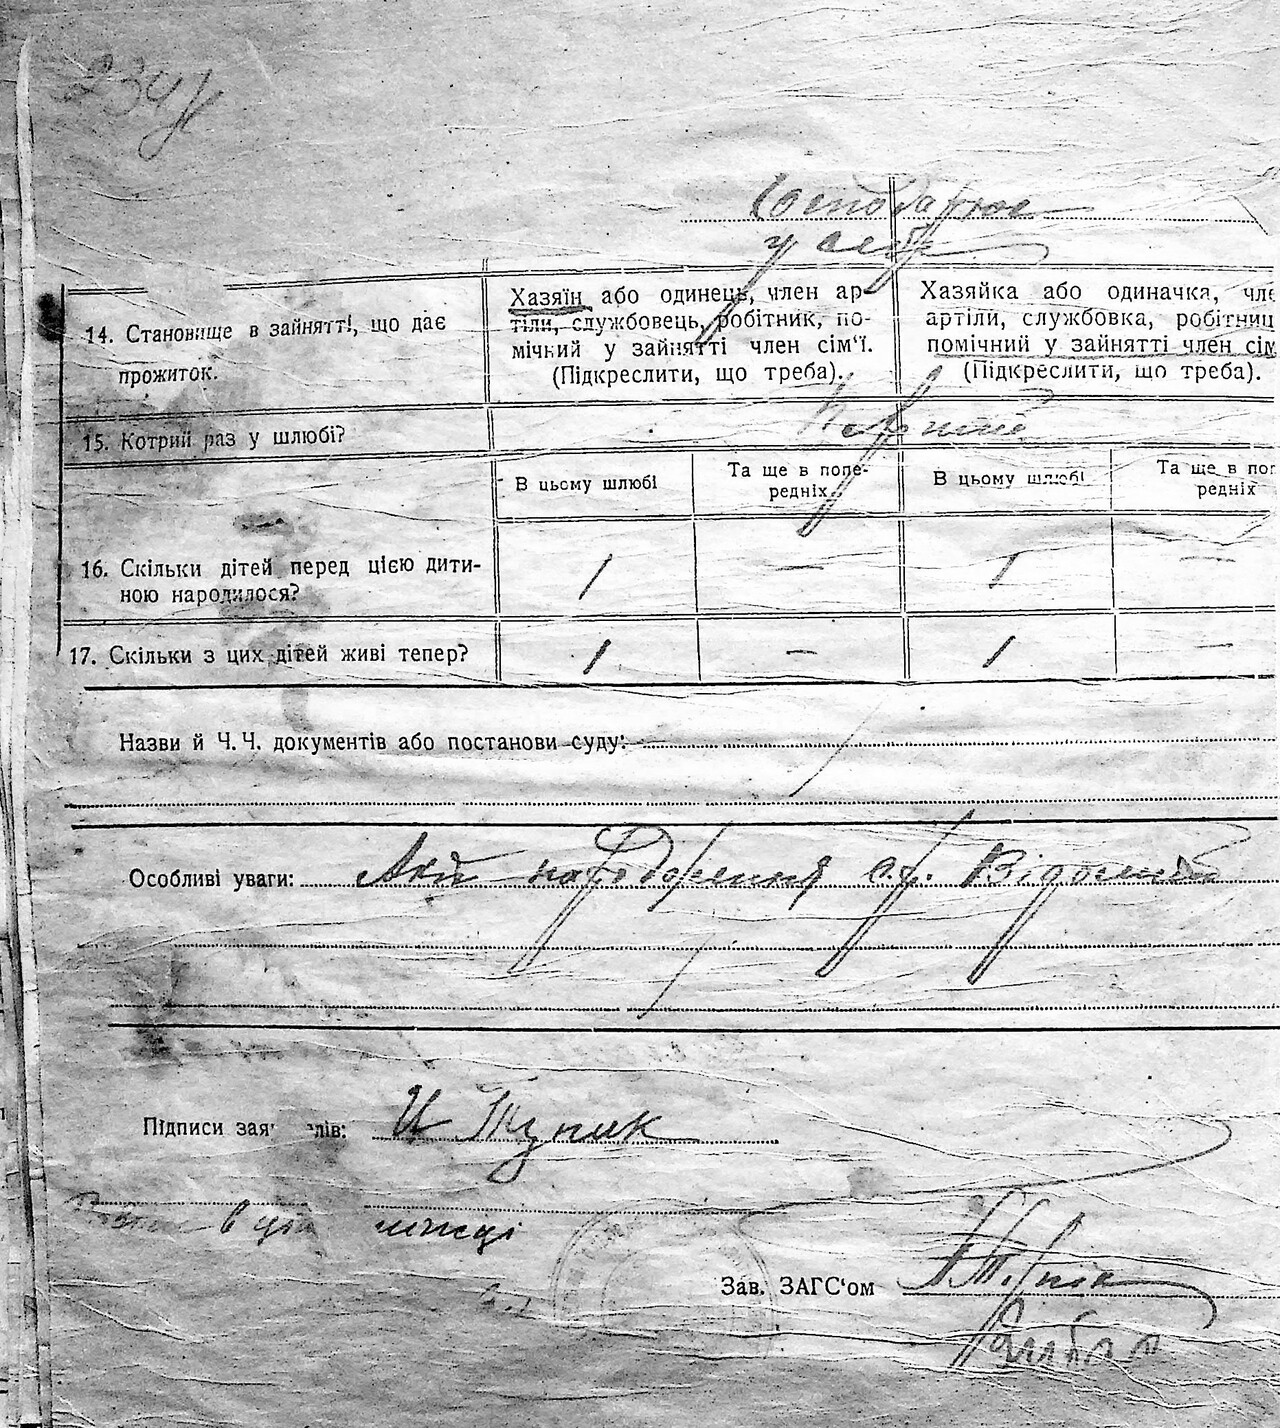 234
Господарює
у себе
14. Становище в зайнятті, що дає
прожиток.
Хазяїн або одинець, член ар-
тіли, службовець, робітник, по-
мічний у зайнятті член сім'ї.
(Підкреслити, що треба).
Хазяйка або одиначка, чле
артіли, службовка, робітниц
помічний у зайнятті член сім
(Підкреслити, що треба).
15. Котрий раз у шлюбі?
В цьому шлюбі
Та ще в попе-
редніх
В цьому шлюбі
Та ще в поп
редніх
16. Скільки дітей перед цією дити-
ною народилося?
1 — 1 —
17. Скільки з цих дітей живі тепер?
1 — 1 —
Назви й Ч. Ч. документів або постанови суду:
Особливі уваги: Акт народження
Підписи зая лів: И Тупик
в цій
Зав. ЗАГС'ом